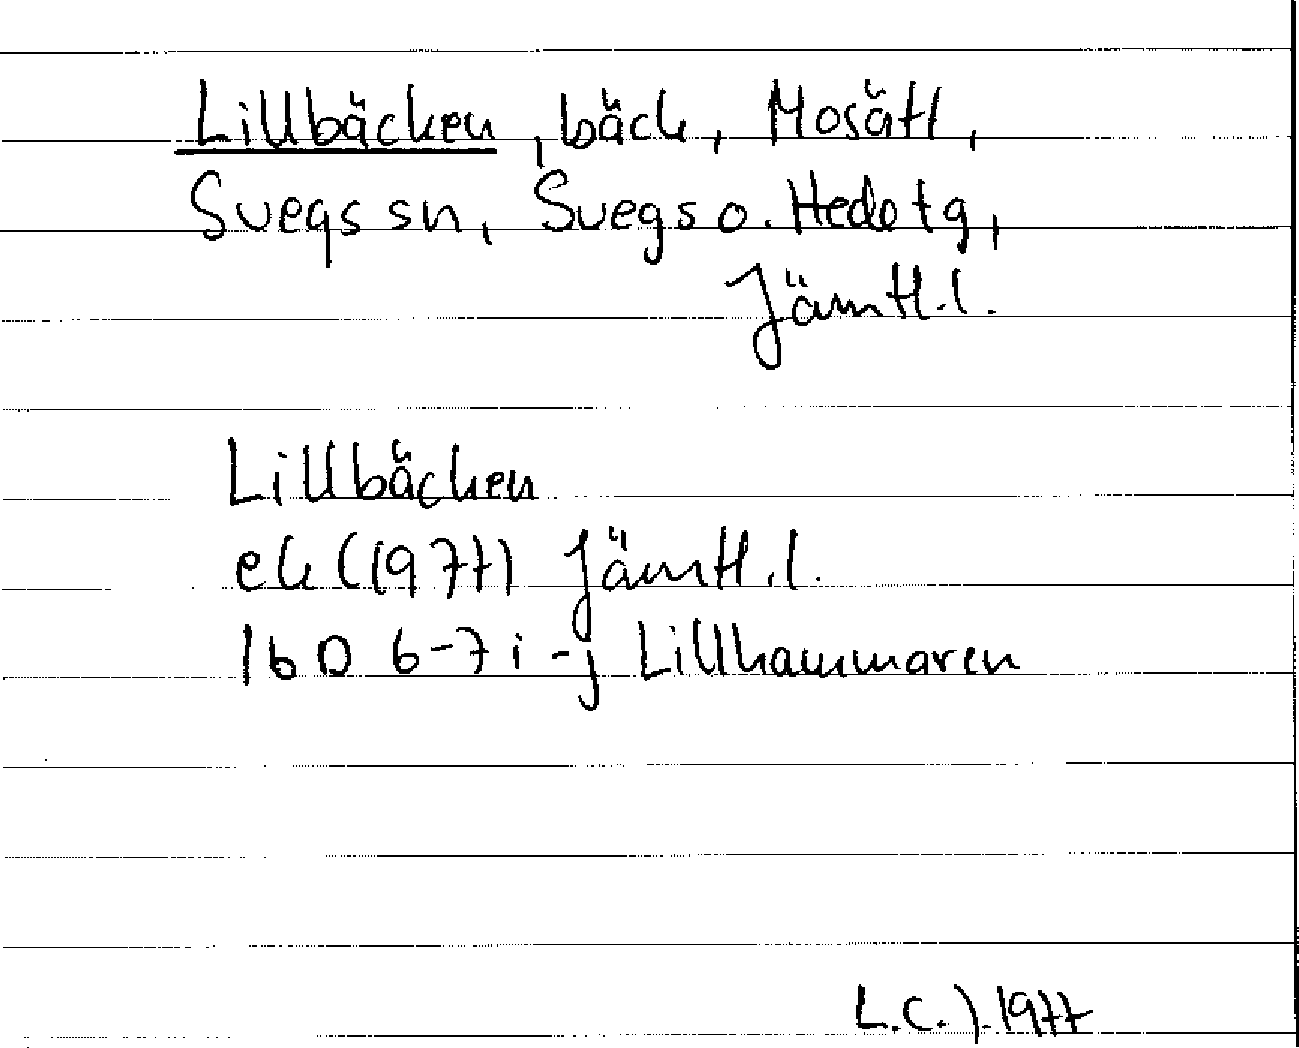 Lillbäcken, bäck, Mosätt,
Svegs sn, Svegs o. Hede tg,
Jämtl.l.
Lillbäcken
ek (1977) Jämtl.l.
16D 6-7 i-j Lillhammaren
L.C.J. 1977